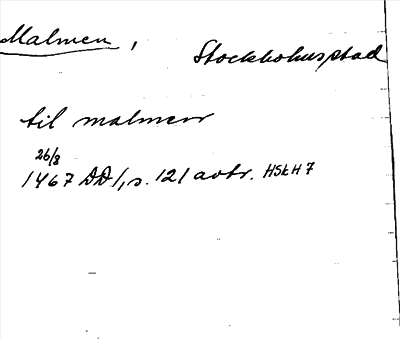 Malmen, Stockholms stad
til malmen
26/8
1467 DD1, s. 121 avtr. HSH 7